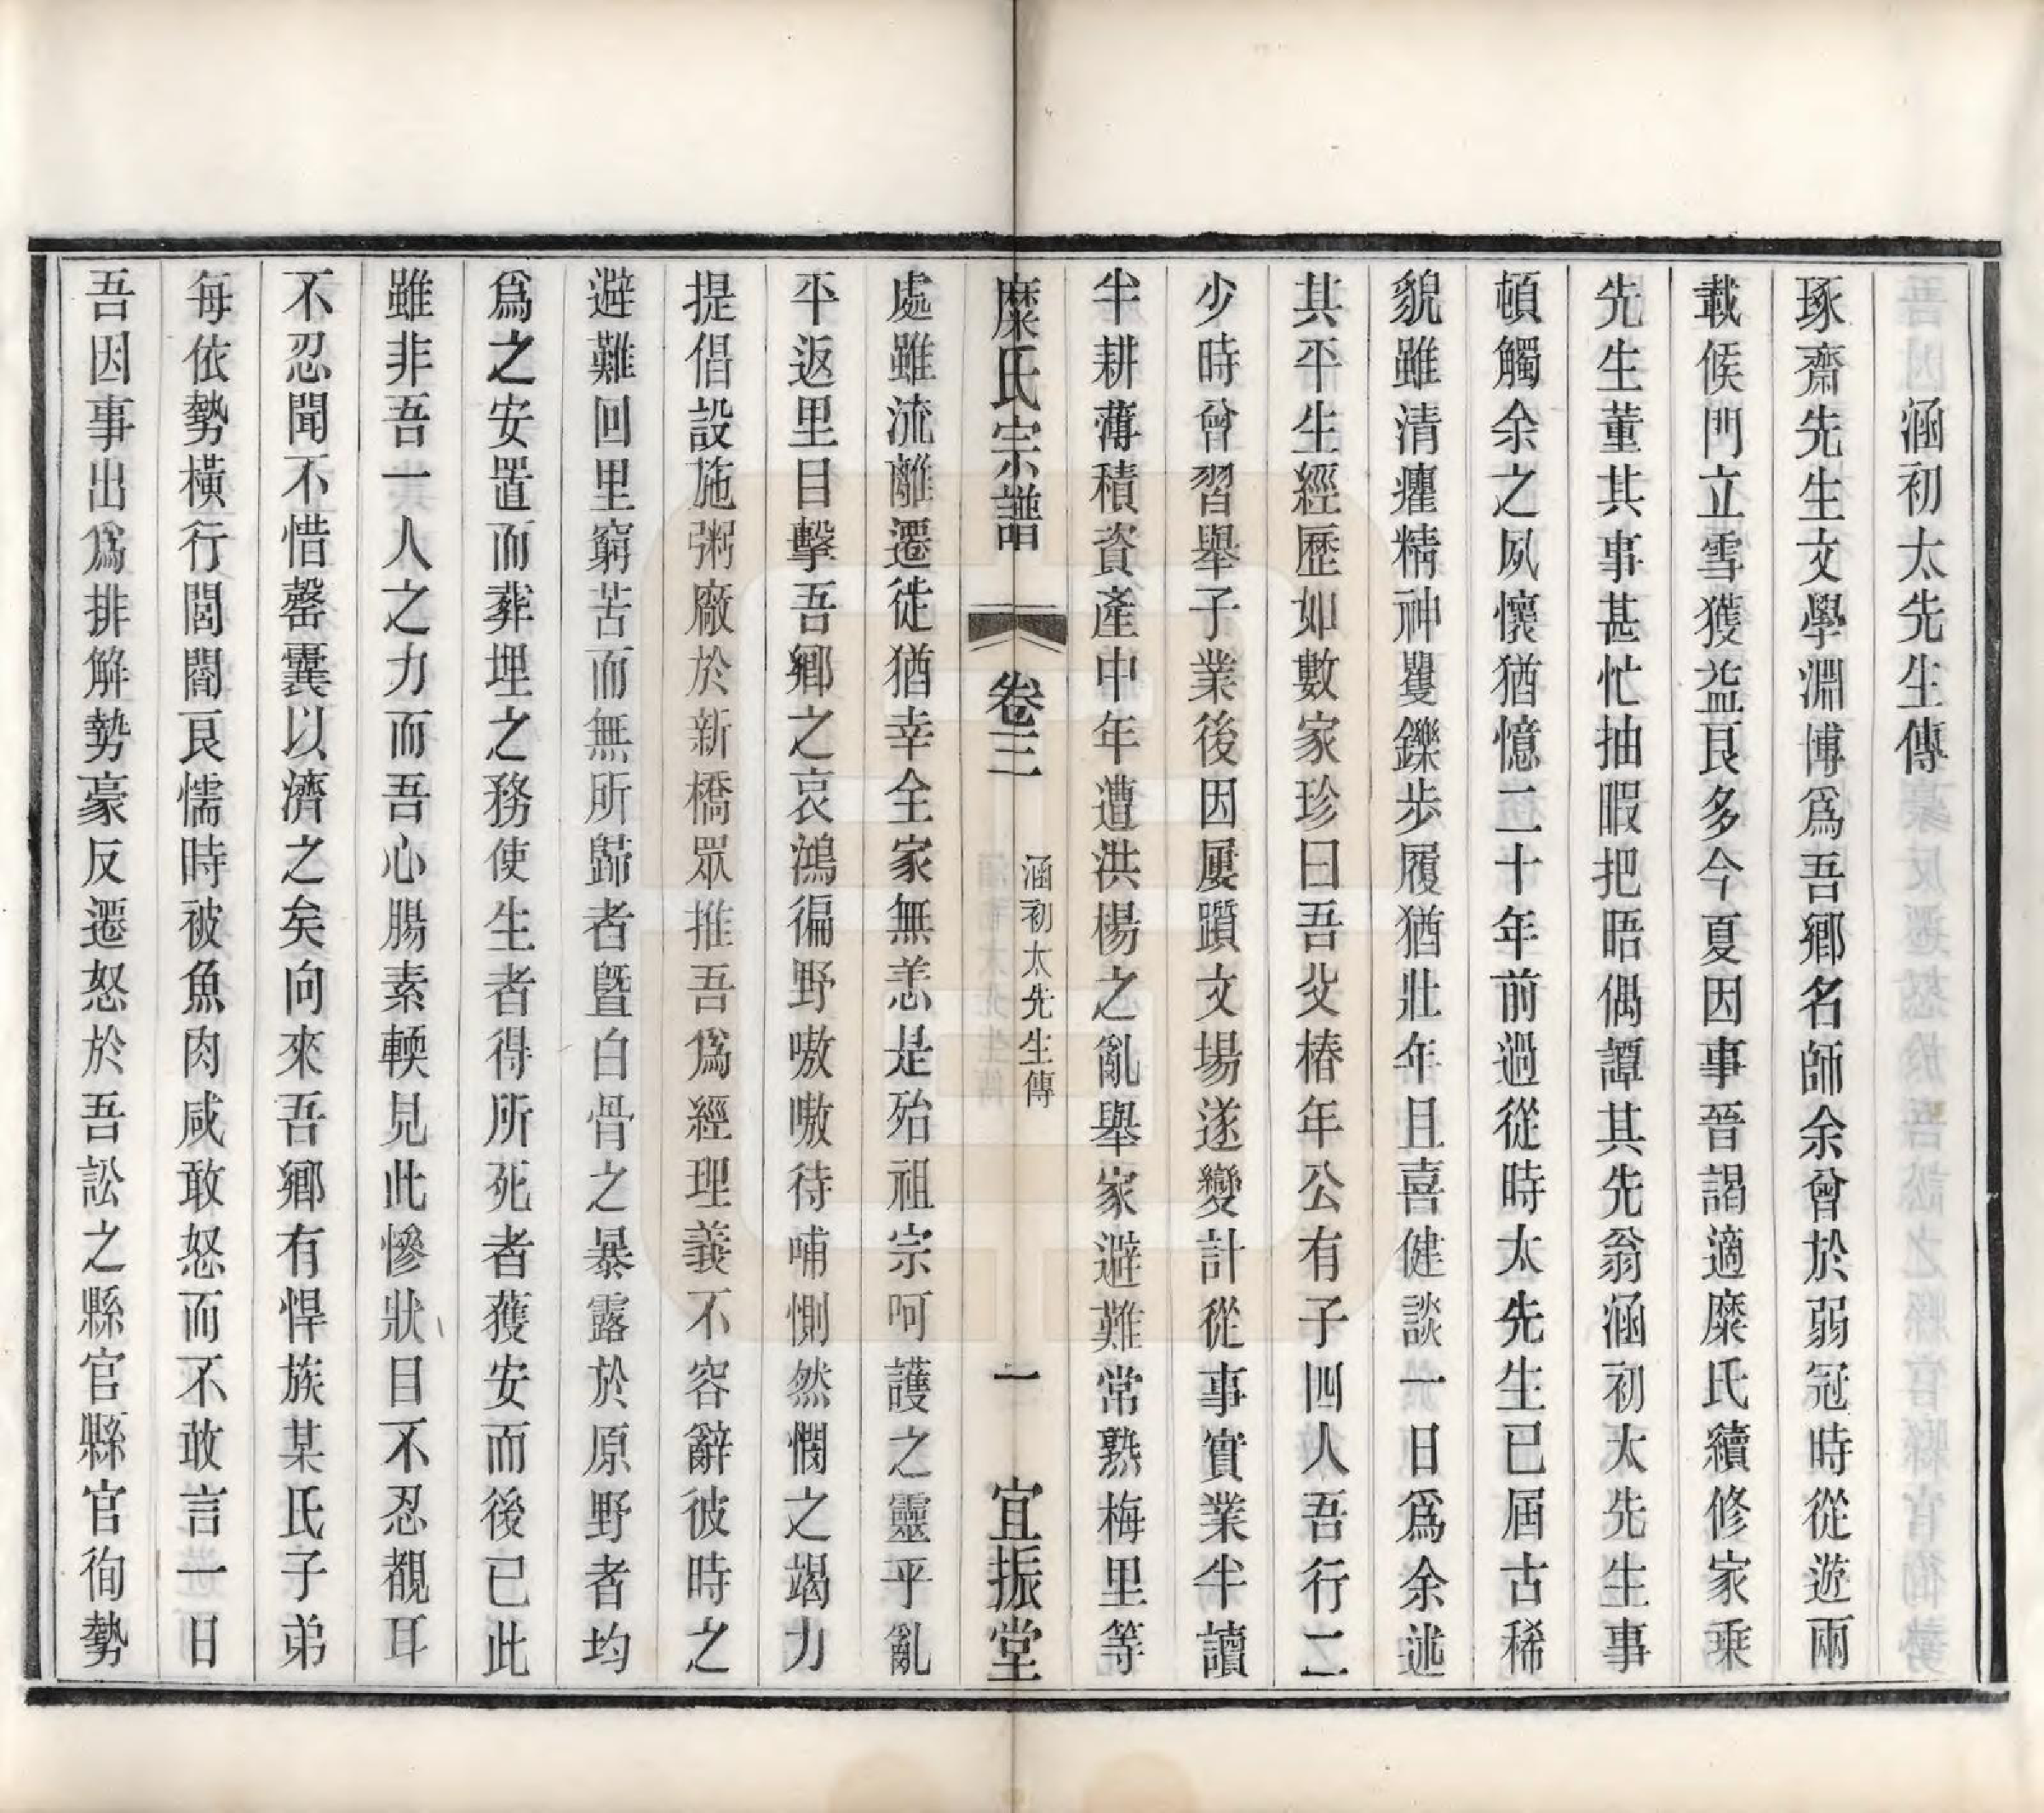 涵初太先生傳
琢齋先生文學淵博爲吾鄉名師余曾於弱冠時從遊兩
載候門立雪獲益良多今夏因事晉謁適糜氏續修家乘
先生董其事甚忙抽暇把晤偶譚其先翁涵初太先生事
頓觸余之夙懷猶憶二十年前過從時太先生已屆古稀
貌雖清癯精神矍鑠步履猶壯年且喜健談一日爲余述
其平生經歷如數家珍曰吾父椿年公有子四人吾行二
少時曾習舉子業後因屢躓文場遂變計從事實業半讀
半耕薄積資產中年遭洪楊之亂舉家避難常熟梅里等
糜氏宗譜
卷三
涵初太先生傳
一
宜振堂
處雖流離遷徙猶幸全家無恙是殆祖宗呵護之靈乎亂
平返里目擊吾鄉之哀鴻徧野嗷嗷待哺惻然憫之竭力
提倡設施粥廠於新橋眾推吾爲經理義不容辭彼時之
避難回里窮苦而無所歸者暨白骨之暴露於原野者均
爲之安置而葬埋之務使生者得所死者獲安而後已此
雖非吾一人之力而吾心腸素輭見此慘狀目不忍覩耳
不忍聞不惜罄囊以濟之矣向來吾鄉有悍族某氏子弟
每依勢橫行閭閻良懦時被魚肉咸敢怒而不敢言一日
吾因事出爲排解勢豪反遷怒於吾訟之縣官縣官徇勢